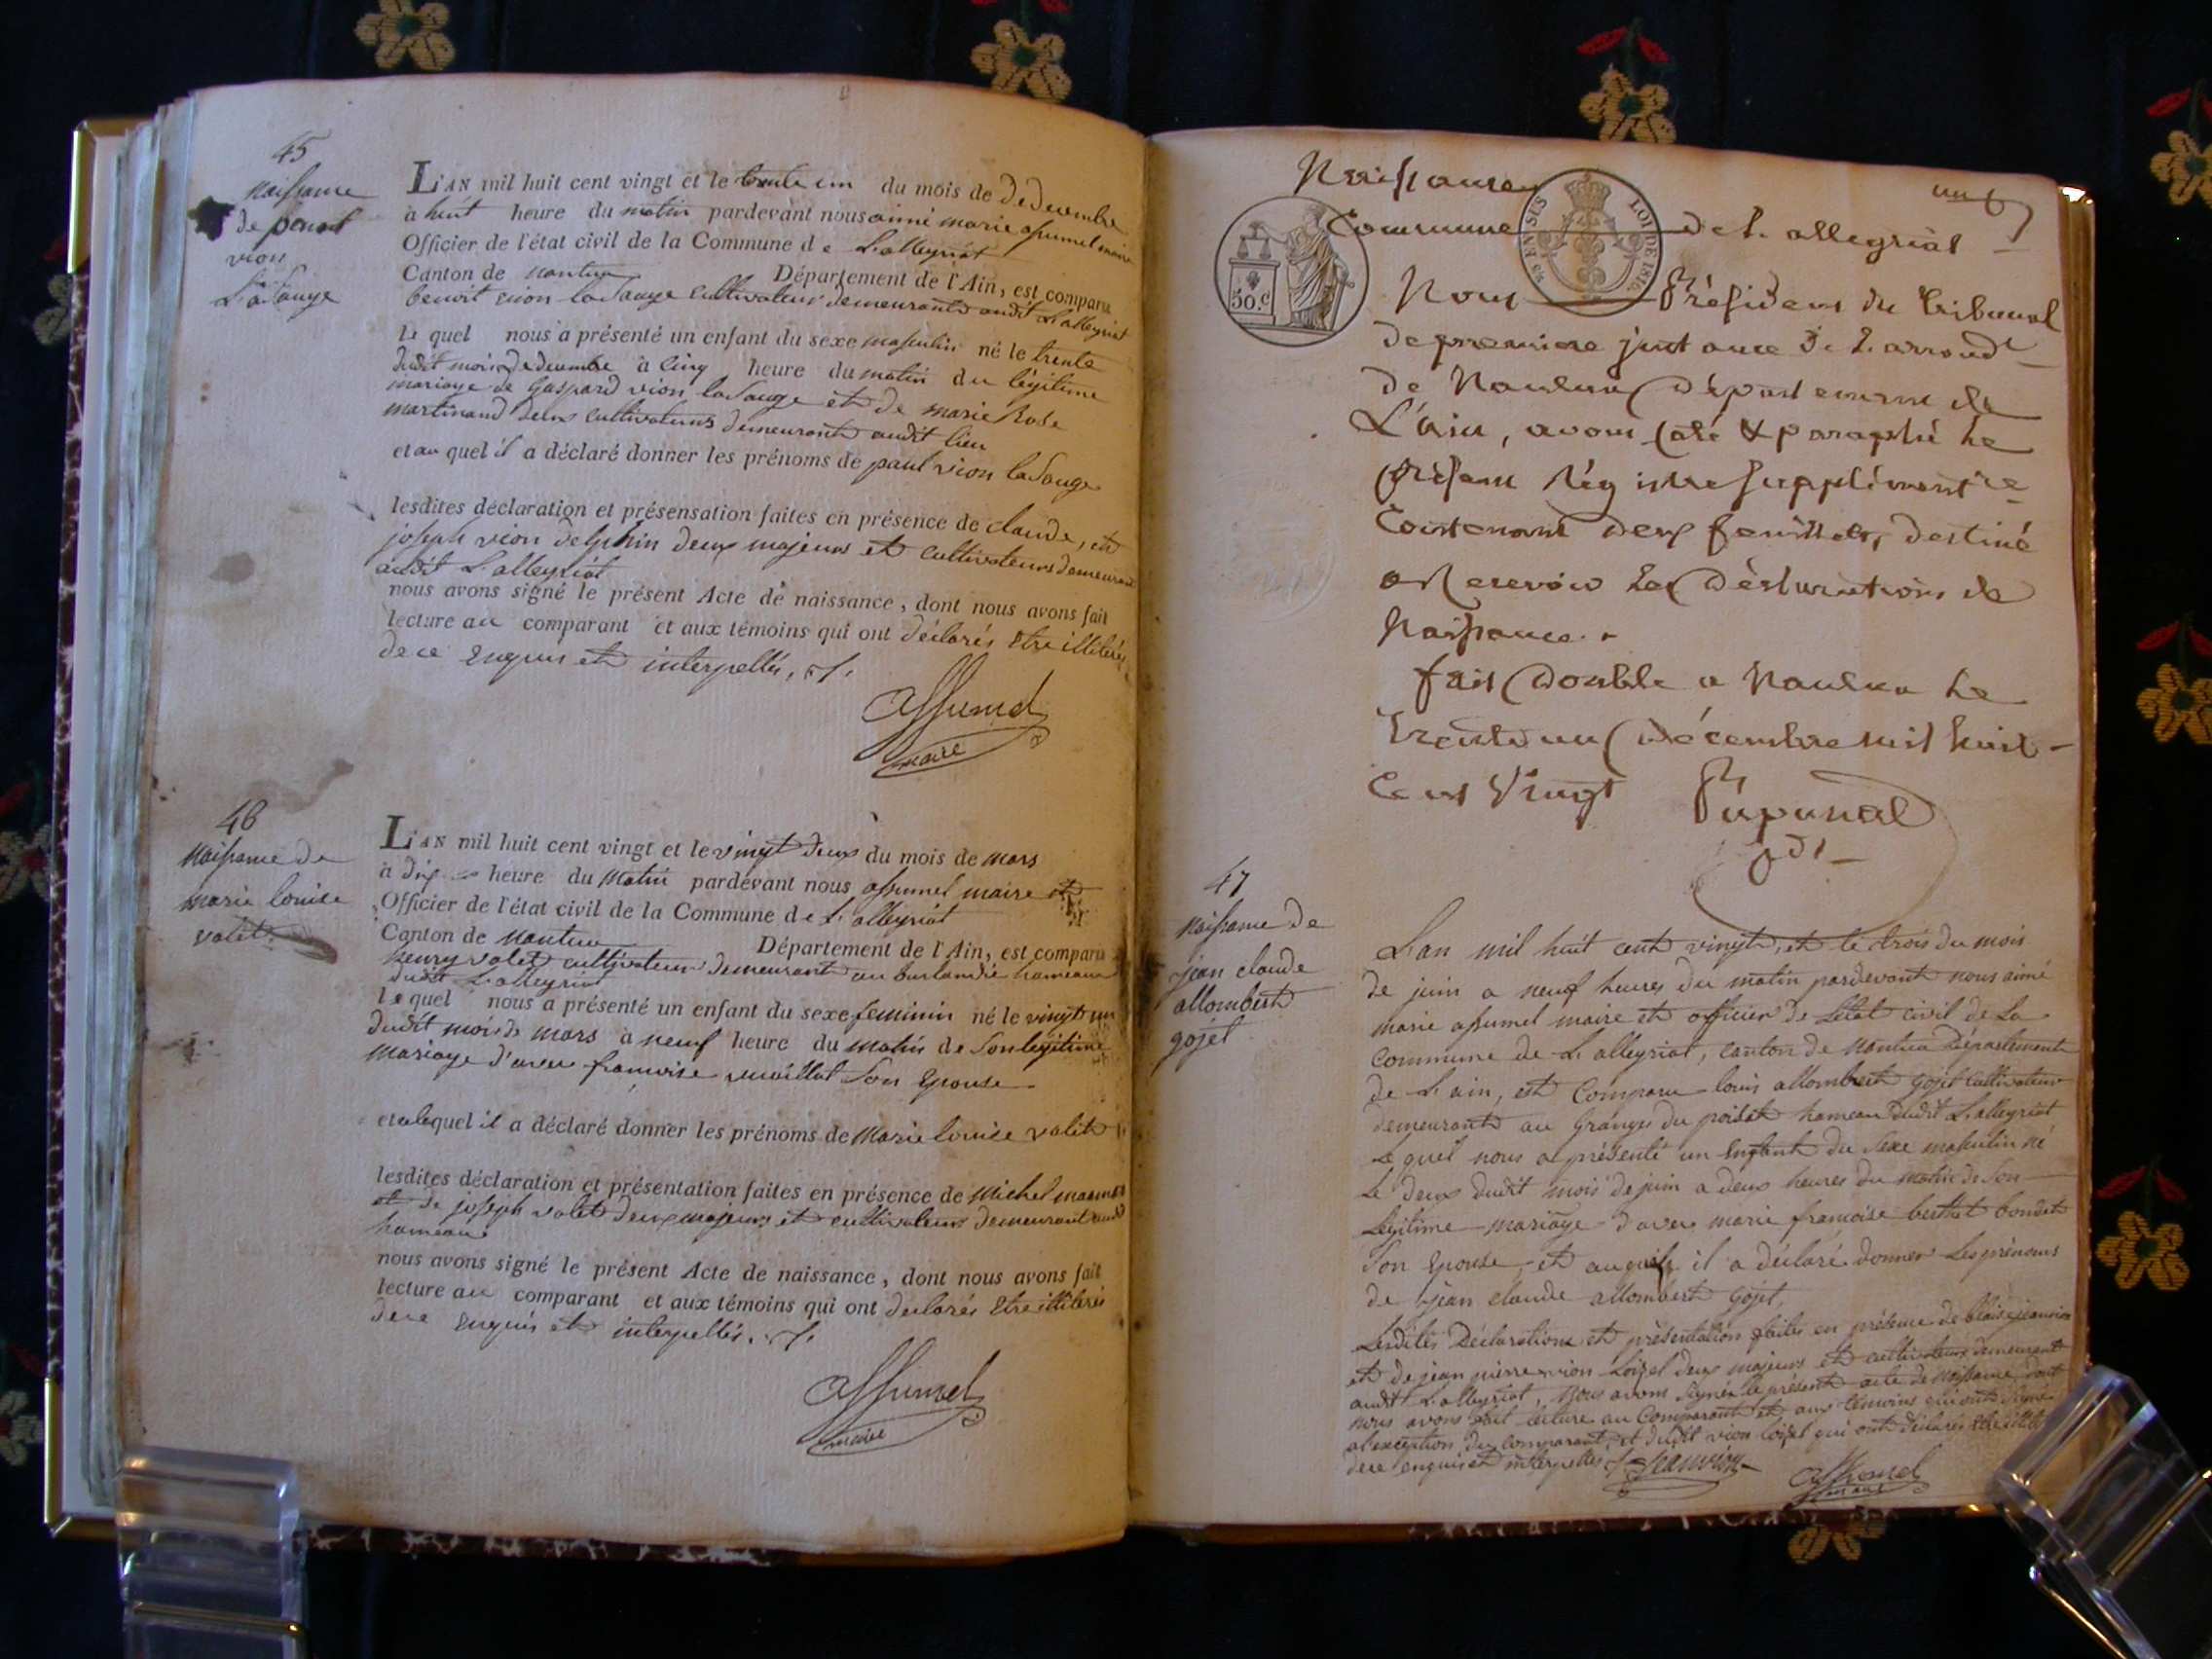 45
Naissance
de paul
vion
Lasauge
L'AN mil huit cent vingt et le trente un du mois de Decembre
à huit heure du matin pardevant nous aimé marie assumel maire
Officier de l'état civil de la Commune de L'alleyriat
Canton de nantua Département de l'Ain, est comparu
benoit vion lasauge cultivateur demeurant audit L'alleyriat
Le quel nous a présenté un enfant du sexe masculin né le trente
dudit mois de decembre à cinq heure du matin du légitime
mariage de Gaspard vion lasauge et de marie Rose
martinand deux cultivateurs demeurant audit lieu
et au quel il a déclaré donner les prénoms de paul vion lasauge
lesdites déclaration et présensation faites en présence de claude, et
joseph vion delphin deux majeurs et cultivateurs demeurant
audit L'alleyriat
nous avons signé le présent Acte de naissance, dont nous avons fait
lecture au comparant et aux témoins qui ont déclarés Etre illiterés
de ce Enquis et interpellés.
Assumel
maire
46
Naissance de
marie louise
valet
L'AN mil huit cent vingt et le vingt deux du mois de mars
à dix heure du matin pardevant nous assumel maire et
Officier de l'état civil de la Commune de L'alleyriat
Canton de nantua Département de l'Ain, est comparu
henry valet cultivateur demeurant au hameau
dudit L'alleyriat
le quel nous a présenté un enfant du sexe feminin né le vingt un
dudit mois de mars à neuf heure du matin de son legitime
mariage d'avec francoise son Epouse
et a lequel il a déclaré donner les prénoms de Marie louise valet
lesdites déclaration et présentation faites en présence de Michel
et de joseph valet deux majeurs et cultivateurs demeurant audit
hameau
nous avons signé le présent Acte de naissance, dont nous avons fait
lecture au comparant et aux témoins qui ont declarés Etre illiterés
de ce Enquis et interpellés.
Assumel
maire
Naissance
un
Commune de L'allegriat
50.c
EN SUS
LOI DE 1816
Nous Président du Tribunal
de premiere instance de L'arrond.t
de Nantua Département de
L'ain, avons coté & paraphé le
présent Régistre supplément.re
Contenant deux feuillets, destiné
a Recevoir Les Déclarations de
Naissance.
fait Double a Nantua le
Trente un Décembre mil huit
Cent Vingt
47
Naissance de
jean claude
allombert
gojet
L'an mil huit cent vingt, et le trois du mois
de juin a neuf heures du matin pardevant nous aimé
marie assumel maire et officier de L'état civil de La
commune de L'alleyriat, canton de Nantua Département
de L'ain, est Comparu louis allombert gojet Cultivateur
demeurant au Granges du poizat hameau dudit L'alleyriat
Le quel nous a présenté un Enfant du sexe masculin né
le deux dudit mois de juin a deux heures du matin de son
Légitime mariage d'avec marie francoise berthet bondet
son Epouse, et auquel il a déclaré donner Les prénoms
de jean claude allombert gojet,
Lesdites Déclaration et présentation faites en présence de blaise jeanvion
et de jean pierre vion Loizet deux majeurs et cultivateurs demeurant
audit L'alleyriat, Nous avons signé le présent acte de Naissance, dont
nous avons fait lecture au Comparant et aux témoins qui ont signé
a l'exception du comparant, et dudit vion loizet qui ont déclarés Etre
de ce enquis et interpellés
Jeanvion
Assumel
maire